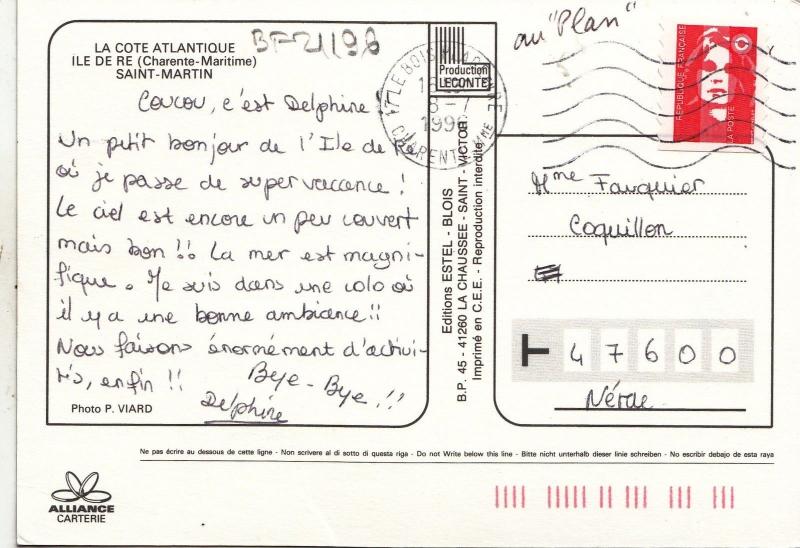 LA COTE ATLANTIQUE
ILE DE RE (Charente-Maritime)
SAINT-MARTIN
BF-21198
au "Plan"
Production
LECONTE
17 LE BOIS
8-7
CHARENTE
REPUBLIQUE FRANÇAISE
LA POSTE
Coucou, c'est Delphine
Un petit bonjour de l'Ile de Ré
où je passe de super vaccance !
Le ciel est encore un peu couvert
mais bon !! La mer est magni-
fique. Je suis dans une colo où
il y a une bonne ambiance !!
Nous faisons énormément d'activi-
tés, enfin !! Bye-Bye !!
Delphine
Photo P. VIARD
Editions ESTEL - BLOIS
B.P. 45 - 41260 LA CHAUSSEE - SAINT - VICTOR
Imprimé en C.E.E. - Reproduction interdite
Mme Fauquier
Coquillon
T 47600
Nérac
Ne pas écrire au dessous de cette ligne - Non scrivere al di sotto di questa riga - Do not Write below this line - Bitte nicht unterhalb dieser linie schreiben - No escribir debajo de esta raya
ALLIANCE
CARTERIE